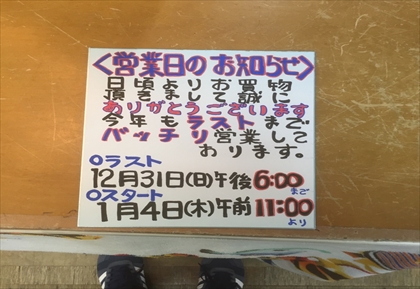 <営業日のお知らせ>
日頃よりお買物
頂きまして誠に
ありがとうございます
今年もラストまで
バッチリ営業して
おります。
○ラスト
12月31日(日)午後6:00まで
○スタート
1月4日(木)午前11:00より